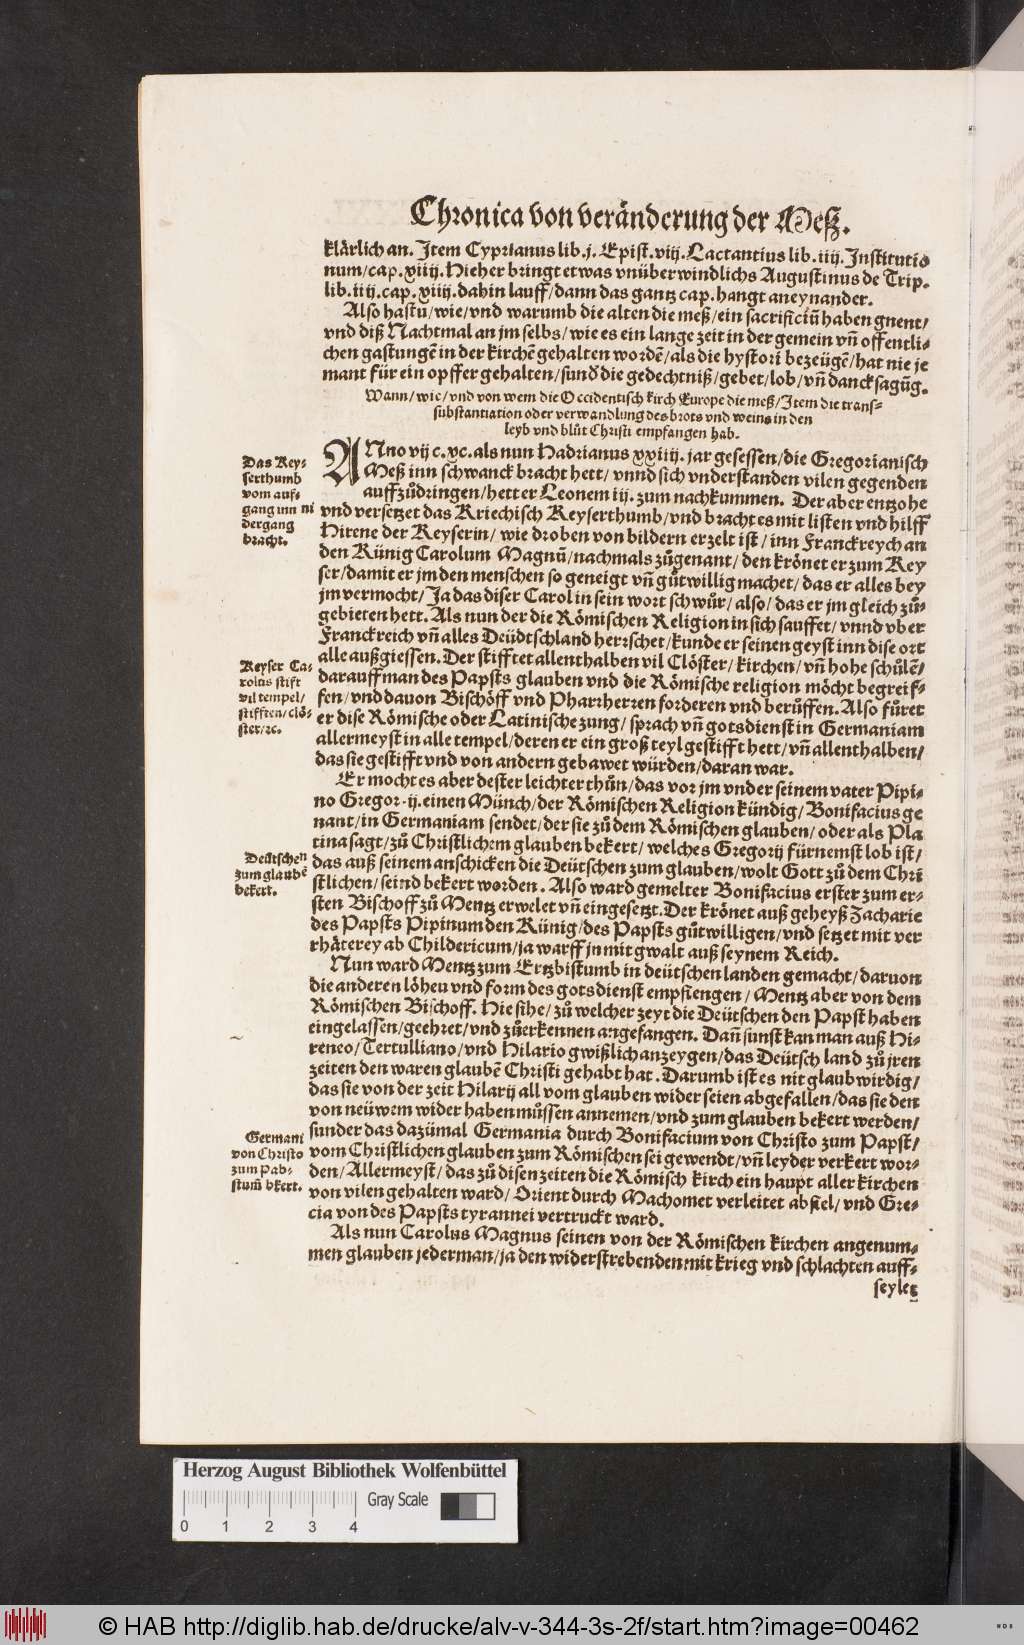 Chronica von veränderung der Meß.
klärlich an. Item Cyprianus lib.j. Epist.viij. Lactantius lib.iiij. Institutio
num/cap.xiiij. Hieher bringt etwas vnüberwindlichs Augustinus de Trip.
lib.iiij.cap.xiiij.dahin lauff/dann das gantz cap.hangt aneynander.
Also hastu/wie/vnd warumb die alten die meß/ein sacrificiū haben gnent/
vnd diß Nachtmal an jm selbs/wie es ein lange zeit in der gemein vn̄ offentli-
chen gastungē in der kirchē gehalten wordē/als die hystori bezeügē/hat nie je
mant für ein opffer gehalten/sund̄ die gedechtniß/gebet/lob/vn̄ danck sagūg.
Wann/wie/vnd von wem die Occidentisch kirch Europe die meß/Item die trans-
substantiation oder verwandlung des brots vnd weins in den
leyb vnd blůt Christi empfangen hab.
Das Key-
serthumb
vom auf-
gang inn ni
dergang
bracht.
ANno vij c.xc.als nun Hadrianus xxiiij. jar gesessen/die Gregorianisch
Meß inn schwanck bracht hett/vnnd sich vnderstanden vilen gegenden
auffzůdringen/hett er Leonem iij. zum nachkummen. Der aber entzohe
vnd versetzet das Kriechisch Keyserthumb/vnd bracht es mit listen vnd hilff
Hirene der Keyserin/wie droben von bildern erzelt ist/inn Franckreych an
den Künig Carolum Magnū/nachmals zůgenant/den krönet er zum Key
ser/damit er jm den menschen so geneigt vn̄ gůtwillig machet/das er alles bey
jm vermocht/Ja das diser Carol in sein wort schwůr/also/das er jm gleich zů-
gebieten hett. Als nun der die Römischen Religion in sich sauffet/vnnd vber
Franckreich vn̄ alles Deüdtschland herrschet/kunde er seinen geyst inn dise ort
alle außgiessen. Der stifftet allenthalben vil Clöster/kirchen/vn̄ hohe schůlē/
darauff man des Papsts glauben vnd die Römische religion möcht begreif-
fen/vnd dauon Bischöff vnd Pharrherren forderen vnd berůffen. Also fůret
er dise Römische oder Latinische zung/sprach vn̄ gotsdienst in Germaniam
allermeyst in alle tempel/deren er ein groß teyl gestifft hett/vn̄ allenthalben/
das sie gestifft vnd von andern gebawet würden/daran war.
Keyser Ca-
rolus stift
vil tempel/
stifften/clö-
ster/ꝛc.
Er mocht es aber dester leichter thůn/das vor jm vnder seinem vater Pipi-
no Gregor.ij.einen Münch/der Römischen Religion kündig/Bonifacius ge
nant/in Germaniam sendet/der sie zů dem Römischen glauben/oder als Pla
tina sagt/zů Christlichem glauben bekert/welches Gregorij fürnemst lob ist/
das auß seinem anschicken die Deütschen zum glauben/wolt Gott zů dem Chri
stlichen/seind bekert worden. Also ward gemelter Bonifacius erster zum er-
sten Bischoff zů Mentz erwelet vn̄ eingesetzt. Der krönet auß geheyß Zacharie
des Papsts Pipinum den Künig/des Papsts gůtwilligen/vnd setzet mit ver
rhäterey ab Childericum/ja warff jn mit gwalt auß seynem Reich.
Deütschen
zum glaubē
bekert.
Nun ward Mentz zum Ertzbistumb in deütschen landen gemacht/daruon
die anderen löhen vnd form des gotsdienst empfiengen/Mentz aber von dem
Römischen Bischoff. Hie sihe/zů welcher zeyt die Deütschen den Papst haben
eingelassen/geehret/vnd zůerkennen angefangen. Dan̄ sunst kan man auß Hi-
reneo/Tertulliano/vnd Hilario gwißlich anzeygen/das Deütsch land zů jren
zeiten den waren glaubē Christi gehabt hat. Darumb ist es nit glaubwirdig/
das sie von der zeit Hilarij all vom glauben wider seien abgefallen/das sie den
von neüwem wider haben můssen annemen/vnd zum glauben bekert werden/
sunder das dazůmal Germania durch Bonifacium von Christo zum Papst/
vom Christlichen glauben zum Römischen sei gewendt/vn̄ leyder verkert wor-
den/Allermeyst/das zů disen zeiten die Römisch kirch ein haupt aller kirchen
von vilen gehalten ward/Orient durch Machomet verleitet abfiel/vnd Gre-
cia von des Papsts tyrannei vertruckt ward.
Germani
von Christo
zum Pab-
stum̄ bkert.
Als nun Carolus Magnus seinen von der Römischen kirchen angenum-
men glauben jederman/ja den widerstrebenden mit krieg vnd schlachten auff-
seylet
Herzog August Bibliothek Wolfenbüttel
Gray Scale
0 1 2 3 4
© HAB http://diglib.hab.de/drucke/alv-v-344-3s-2f/start.htm?image=00462